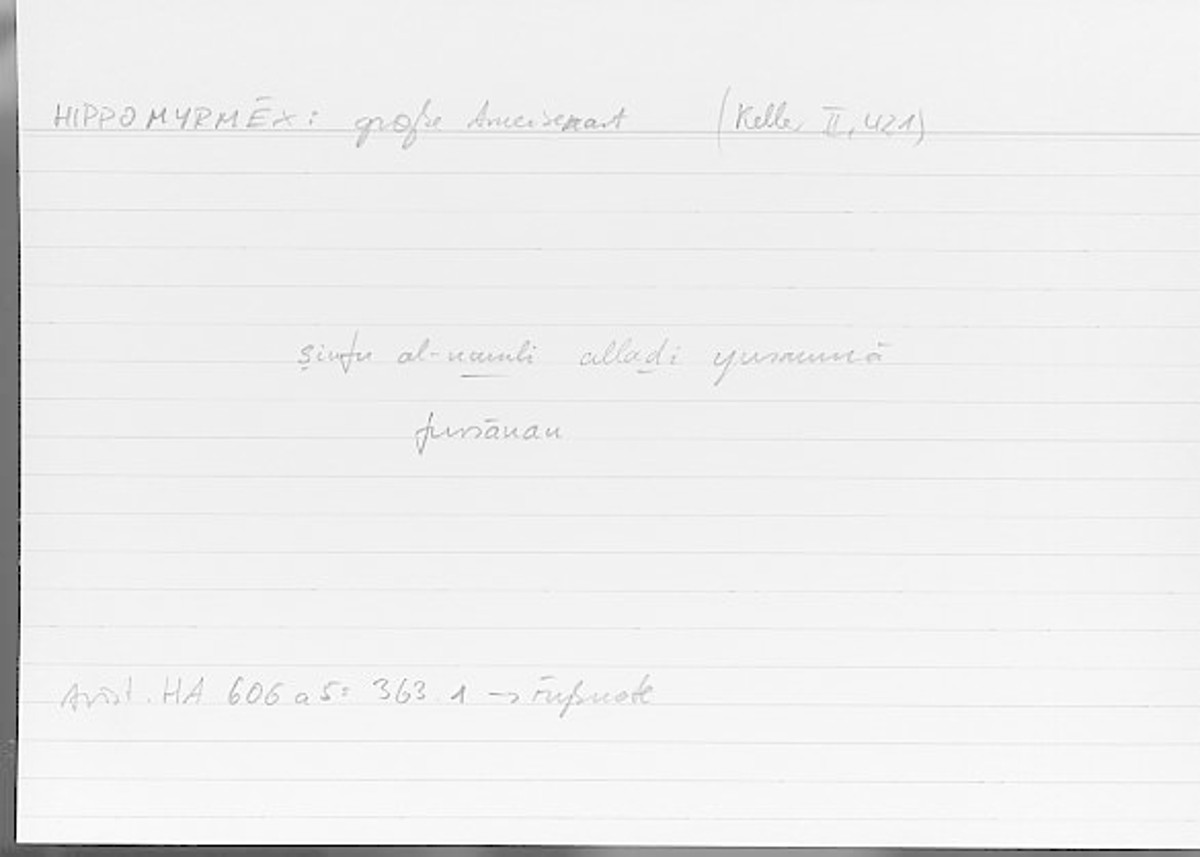 HIPPOMYRMĒX: große Ameisenart (Keller II, 421)
ṣinfu al-namli allaḏi yusammā
fursānan
Arist. HA 606 a 5: 363.1 → Fußnote